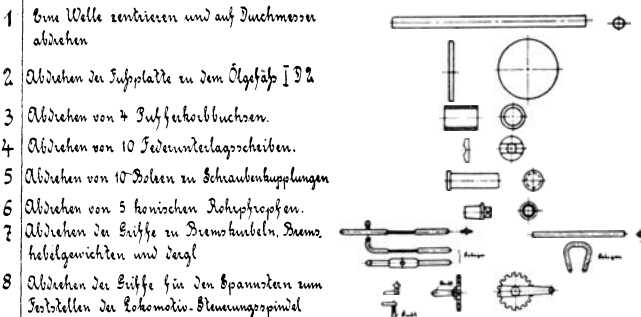 1 Eine Welle zentrieren und auf Durchmesser
abdrehen
2 Abdrehen der Fußplatte zu dem Ölgefäß I D 2
3 Abdrehen von 4 Pufferkorbbuchsen.
4 Abdrehen von 10 Federunterlagsscheiben.
5 Abdrehen von 10 Bolzen zu Schraubenkupplungen
6 Abdrehen von 5 konischen Rohrpfropfen.
7 Abdrehen der Griffe zu Bremskurbeln, Brems-
hebelgewichten und dergl
8 Abdrehen der Griffe für den Spannstern zum
Feststellen der Lokomotiv-Steuerungsspindel